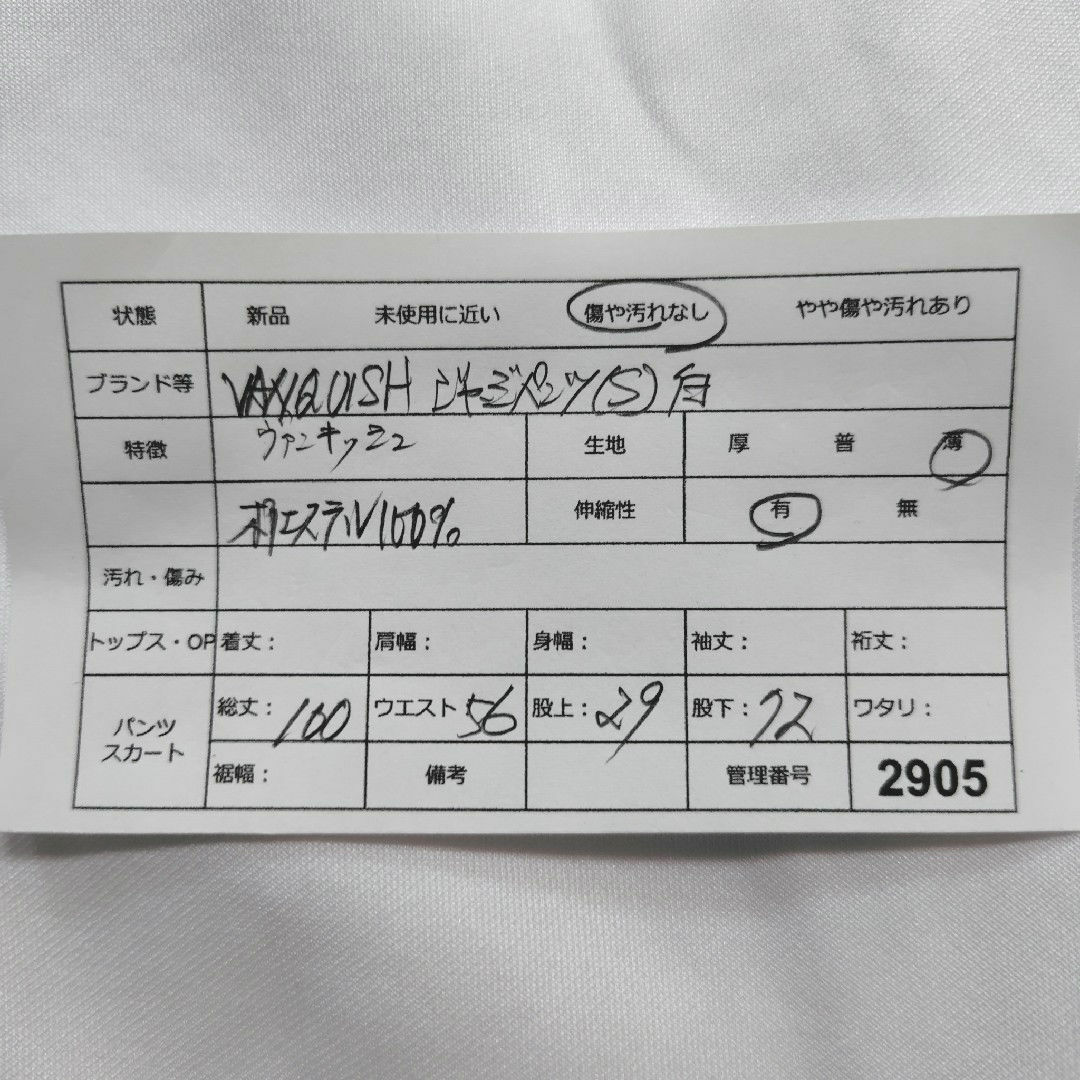 状態 新品 未使用に近い 傷や汚れなし やや傷や汚れあり
ブランド等 VANQUISH ジャージパンツ(S) 白
特徴 ヴァンキッシュ 生地 厚 普 薄
ポリエステル100% 伸縮性 有 無
汚れ・傷み
トップス・OP 着丈: 肩幅: 身幅: 袖丈: 裄丈:
パンツ スカート 総丈: 100 ウエスト 56 股上: 29 股下: 72 ワタリ:
裾幅: 備考 管理番号 2905